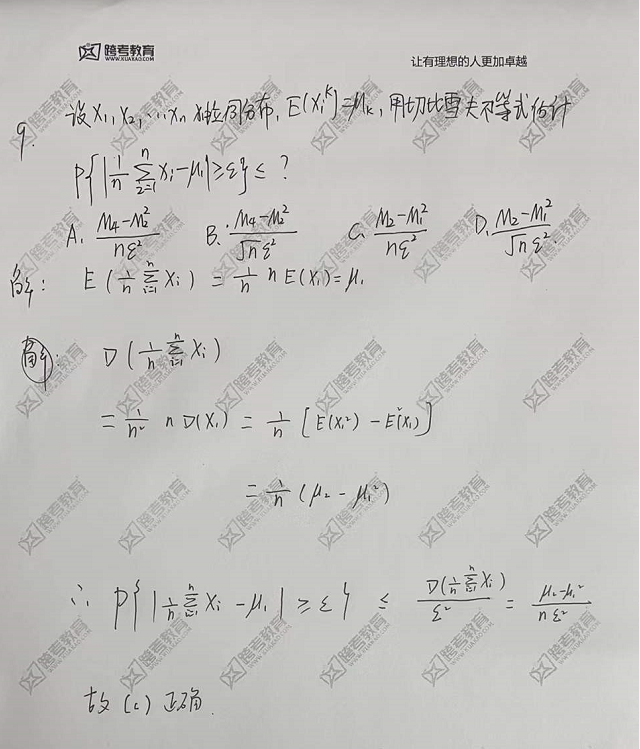 跨考教育
WWW.KUAKAO.COM
让有理想的人更加卓越
9. 设X₁,X₂,…Xn 独立同分布, E(Xᵢᵏ)=μₖ, 用切比雪夫不等式估计
P{|1/n ∑ᵢ₌₁ⁿ Xᵢ-μ₁|≥ε}≤ ?
A. (μ₄-μ₂²)/(nε²) B. (μ₄-μ₂²)/(√n ε²) C. (μ₂-μ₁²)/(nε²) D. (μ₂-μ₁²)/(√n ε²).
解: E(1/n ∑ᵢ₌₁ⁿ Xᵢ) = 1/n n E(X₁)=μ₁
解: D(1/n ∑ᵢ₌₁ⁿ Xᵢ)
= 1/n² n D(X₁) = 1/n [E(X₁²) - E²(X₁)]
= 1/n (μ₂-μ₁²)
∴ P{|1/n ∑ᵢ₌₁ⁿ Xᵢ - μ₁| ≥ ε} ≤ D(1/n ∑ᵢ₌₁ⁿ Xᵢ)/ε² = (μ₂-μ₁²)/(nε²)
故 (C) 正确.